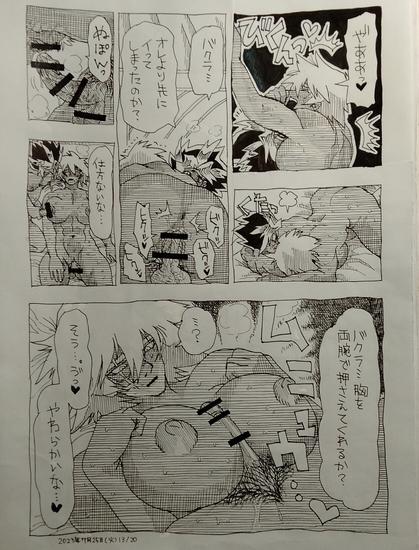 やああっ♥
びくんっ♡
ぐたっ…
バクラ…
オレより先に
イって
しまったのか？
ドクッ♥
ドクッ♥
ビクッ♥
ぬぽんっ
仕方ないな…
バクラ…胸を
両腕で押さえてくれるか？
…う？
そう…ぅっ♥
やわらかいな…♥
2023年11月28日(火) 13/20